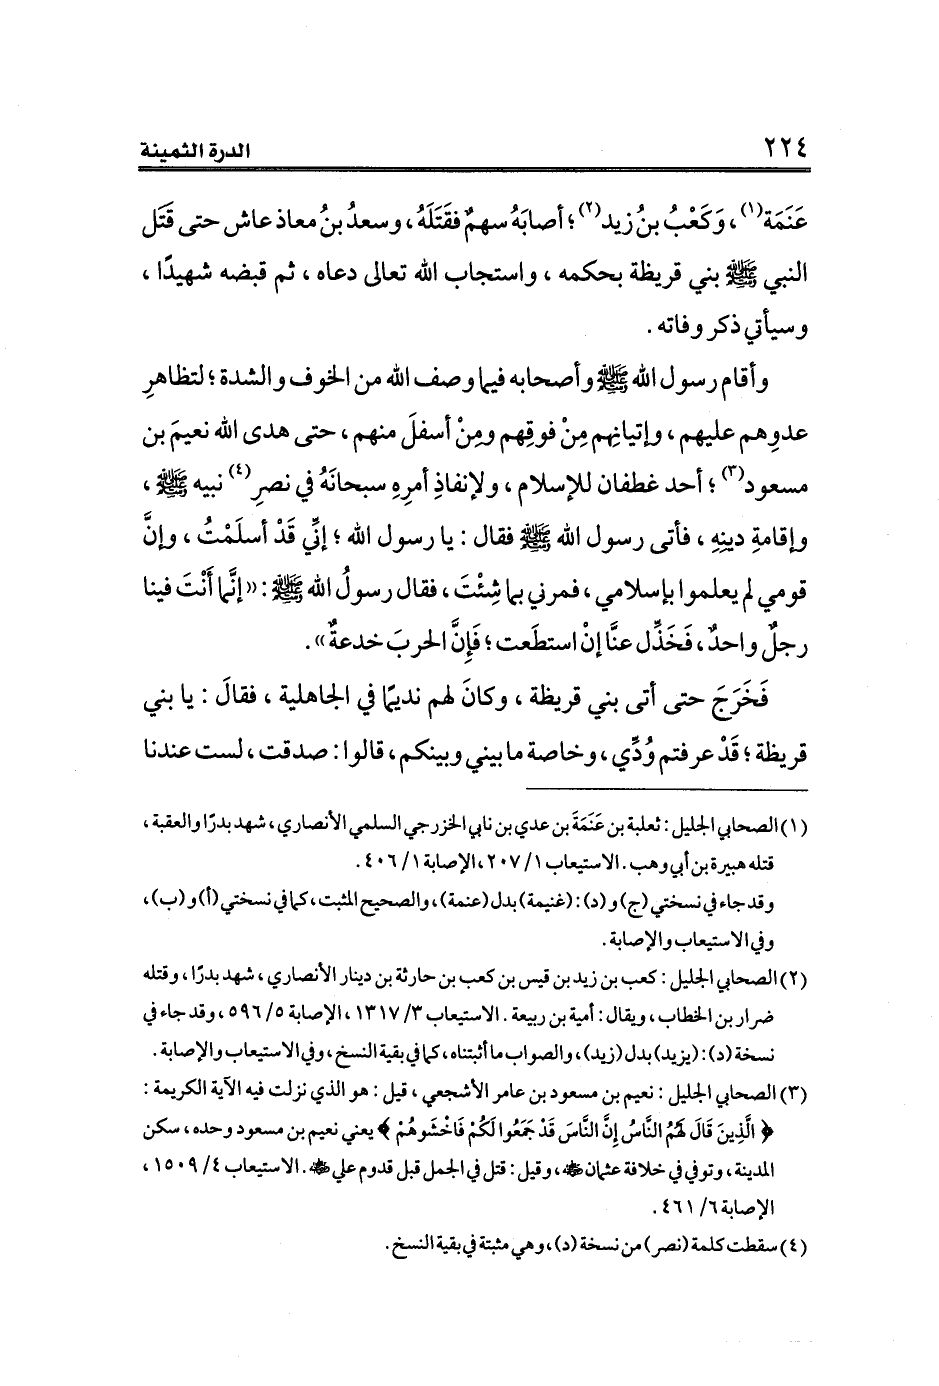 ٢٢٤ الدرة الثمينة
عَنَمَة(١)، وَكَعْبُ بنُ زيد(٢)؛ أصابَهُ سهمٌ فقَتَلَهُ، وسعدُ بنُ معاذ عاش حتى قَتَل
النبي ﷺ بني قريظة بحكمه ، واستجاب الله تعالى دعاه ، ثم قبضه شهيدًا ،
وسيأتي ذكر وفاته .
وأقام رسول الله ﷺ وأصحابه فيما وصف الله من الخوف والشدة ؛ لتظاهرِ
عدوِهم عليهم ، وإتيانِهم مِنْ فوقِهم ومِنْ أسفلَ منهم ، حتى هدى الله نعيمَ بن
مسعود(٣) ؛ أحد غطفان للإسلام ، ولإنفاذِ أمرِهِ سبحانَهُ في نصرِ(٤) نبيه ﷺ ،
وإقامةِ دينِهِ ، فأتى رسول الله ﷺ فقال : يا رسول الله ؛ إنِّي قَدْ أسلَمْتُ ، وإنَّ
قومي لم يعلموا بإسلامي ، فمرني بما شِئْتَ ، فقال رسولُ الله ﷺ : «إنَّما أَنْتَ فينا
رجلٌ واحدٌ، فَخَذِّل عنَّا إنْ استطَعت ؛ فَإِنَّ الحربَ خدعةٌ» .
فَخَرَجَ حتى أتى بني قريظة ، وكانَ لهم نديمًا في الجاهلية ، فقالَ : يا بني
قريظة ؛ قَدْ عرفتم وُدِّي ، وخاصة ما بيني وبينكم ، قالوا : صدقت ، لست عندنا
(١) الصحابي الجليل : ثعلبة بن عَنَمَةَ بن عدي بن نابي الخزرجي السلمي الأنصاري ، شهد بدرًا والعقبة ،
قتله هبيرة بن أبي وهب . الاستيعاب ١/ ٢٠٧ ، الإصابة ١/ ٤٠٦ .
وقد جاء في نسختي (ج) و (د) : (غنيمة) بدل (عنمة) ، والصحيح المثبت ، كما في نسختي (أ) و (ب) ،
وفي الاستيعاب والإصابة .
(٢) الصحابي الجليل : كعب بن زيد بن قيس بن كعب بن حارثة بن دينار الأنصاري ، شهد بدرًا ، وقتله
ضرار بن الخطاب ، ويقال : أمية بن ربيعة . الاستيعاب ٣/ ١٣١٧ ، الإصابة ٥/ ٥٩٦ ، وقد جاء في
نسخة (د) : (يزيد) بدل (زيد) ، والصواب ما أثبتناه ، كما في بقية النسخ ، وفي الاستيعاب والإصابة .
(٣) الصحابي الجليل : نعيم بن مسعود بن عامر الأشجعي ، قيل : هو الذي نزلت فيه الآية الكريمة :
﴿ الَّذِينَ قَالَ لَهُمُ النَّاسُ إِنَّ النَّاسَ قَدْ جَمَعُوا لَكُمْ فَاخْشَوْهُمْ ﴾ يعني نعيم بن مسعود وحده ، سكن
المدينة ، وتوفي في خلافة عثمان ﷺ ، وقيل : قتل في الجمل قبل قدوم علي ﷺ . الاستيعاب ٤/ ١٥٠٩ ،
الإصابة ٦/ ٤٦١ .
(٤) سقطت كلمة (نصر) من نسخة (د) ، وهي مثبتة في بقية النسخ .